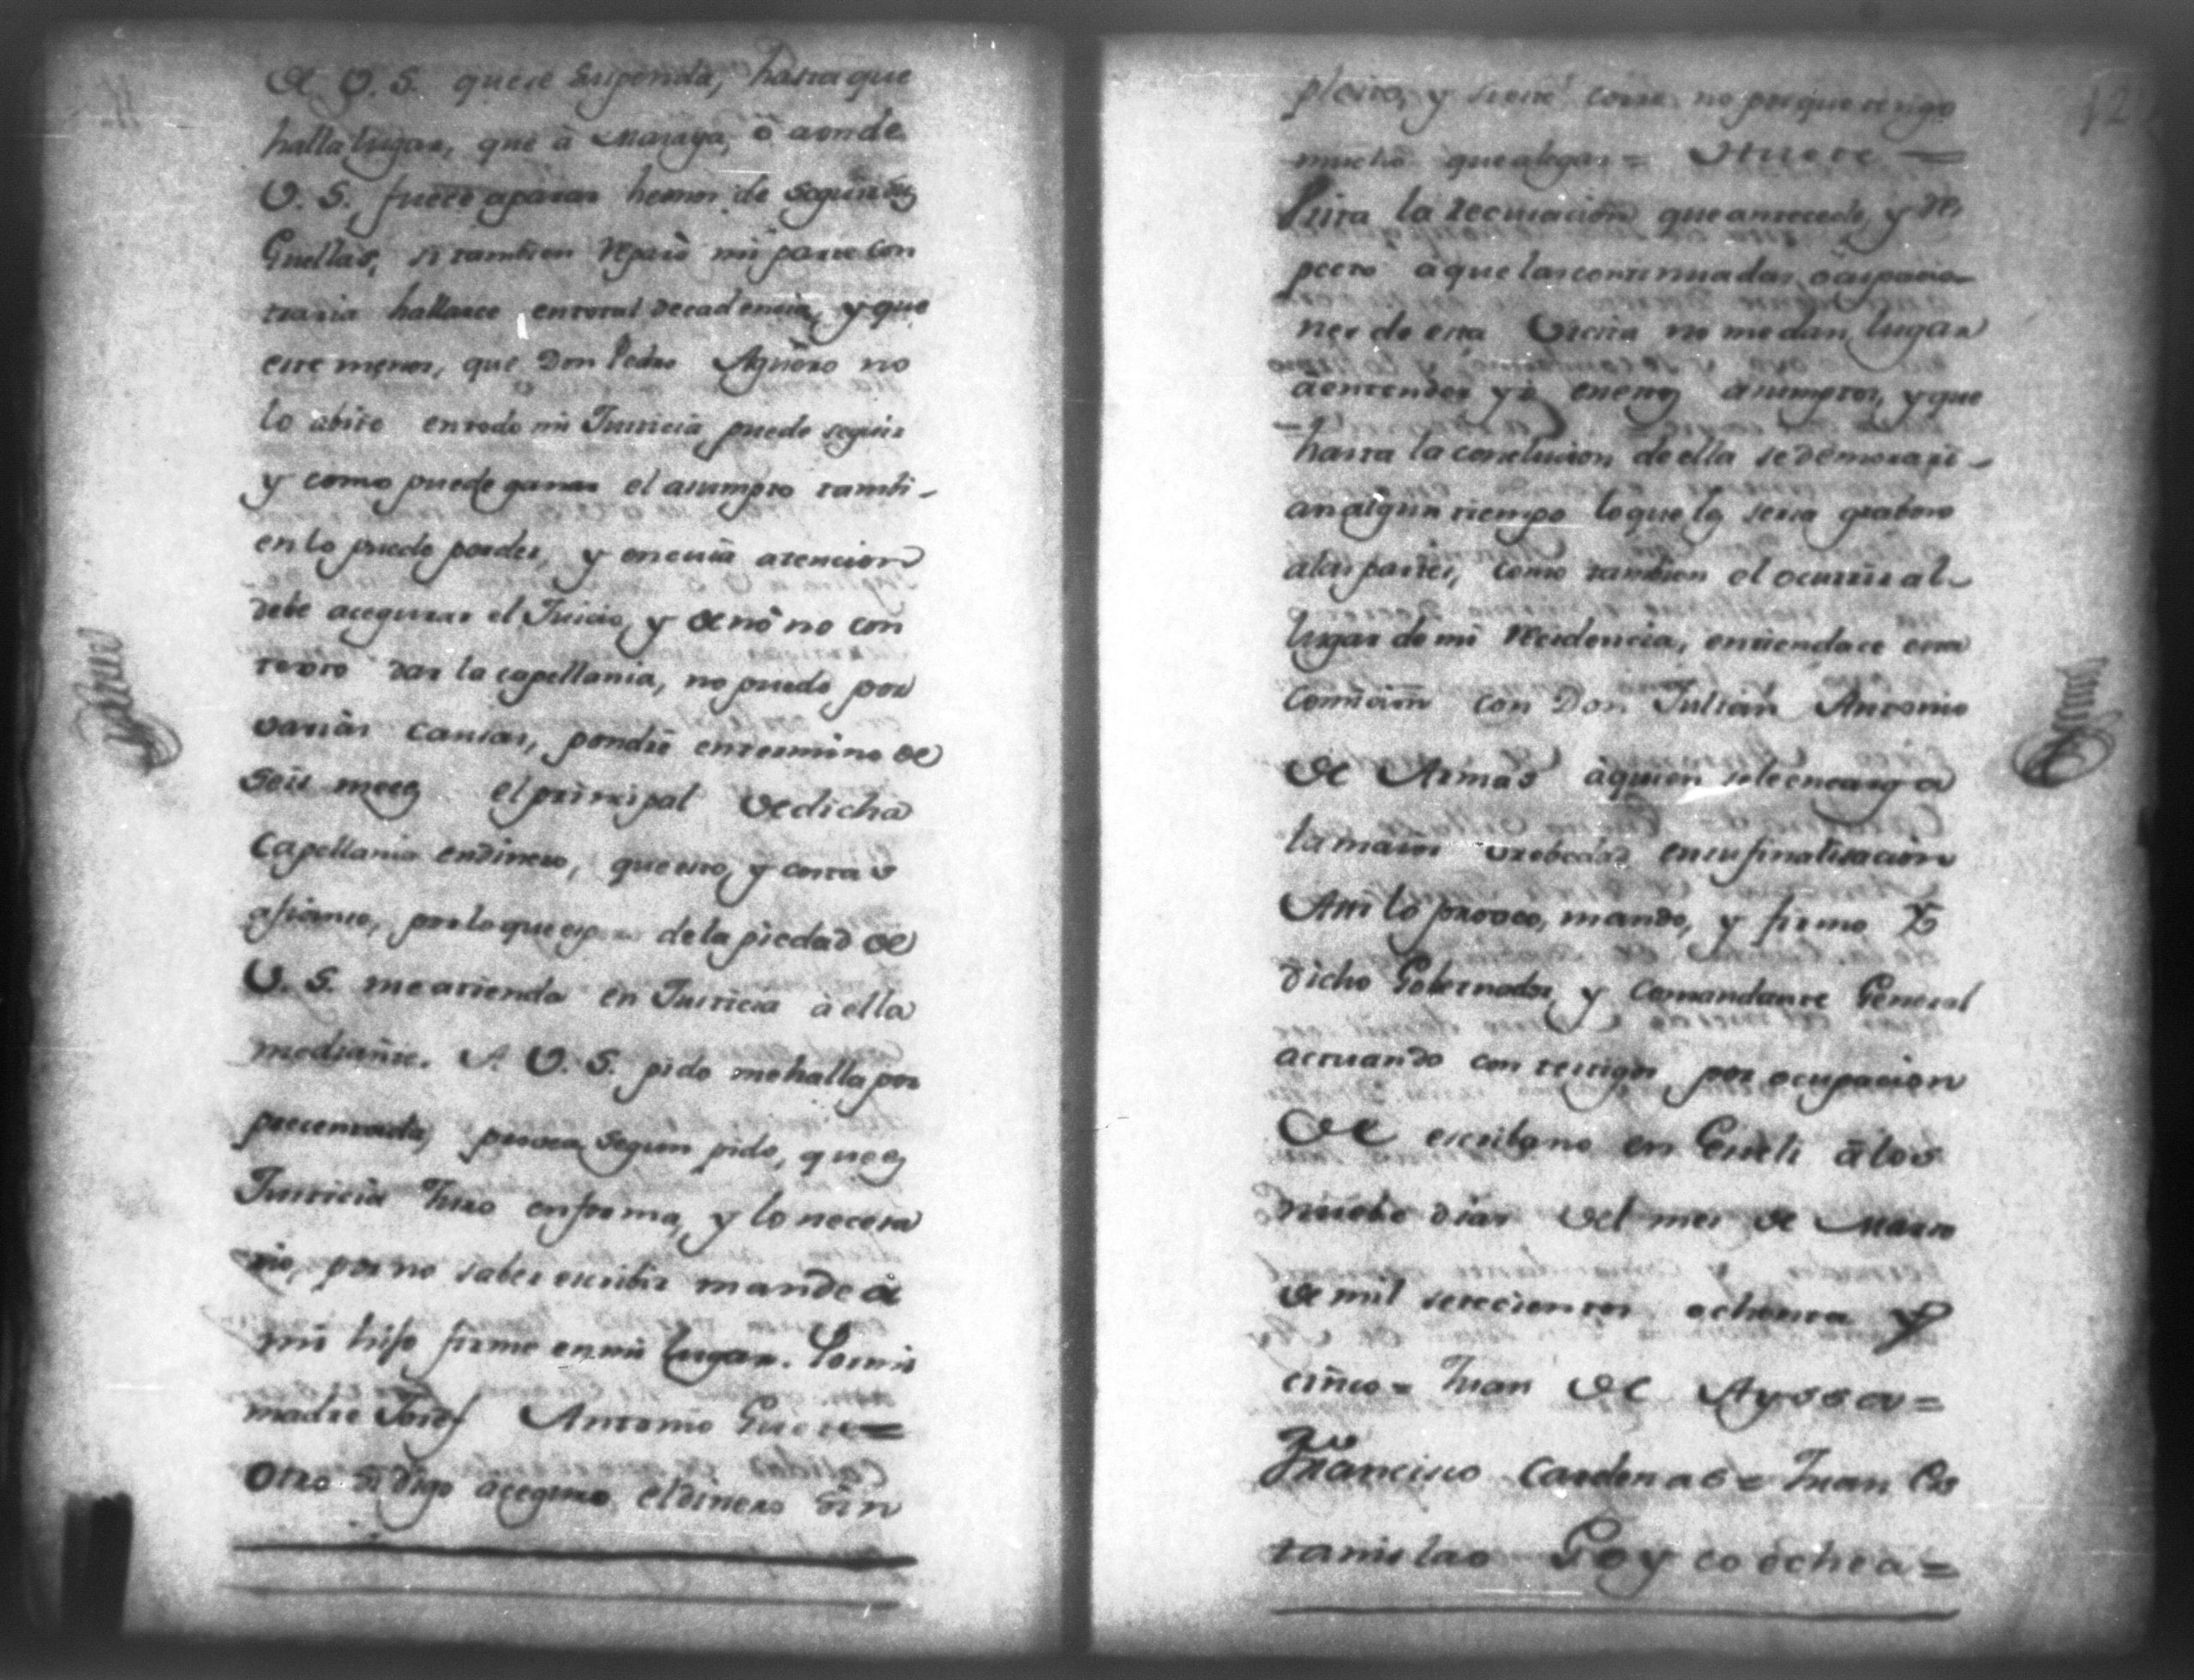 de V. S. que se suspenda, hasta que
halla lugar, que â Masaya, ô aonde
V. S. fuere aparar hemos de seguir sus
Guellas, si tambien reparò mi parte con
traria hallarce en total decadencia, y que
este menor, que Don Pedro Aguero no
lo abito en todo mi Justicia puede seguir
y como puede ganar el asumpto tambi-
en lo puede perder, y en cuia atencion
debe acegurar el Juicio, y de nó no con
texto dar la capellania, no puedo por
varias causas, pondré en termino de
seis meses el principal de dicha
Capellania en dinero, que esto, y costas
afiance, por lo que espero de la piedad de
V. S. me atienda en Justicia à ella
mediante. A V. S. pido me halla por
precentada, provea segun pido, que es
Justicia Juro en forma, y lo necesa
rio, por no saber escribir mande â
mi hijo firme en mi lugar. Por mi
madre Josef Antonio Guere=
Otro si digo acegure el dinero sin
12
pleito, y siene corre no porque tengo
mucho que alegar=
Vista la recusacion que antecede, y res
pecto à que las continuadas ocupacio-
nes de esta Vicita no me dan lugar
à entender yo en estos asumptos, y que
hasta la conclusion de ella se demorari-
an algun tiempo lo que les seria graboso
a las partes, como tambien el ocurrir al
lugar de mi recidencia, entiendace esta
Comicion con Don Julian Antonio
de Armas à quien se le encarga
la maior brebedad en su finalisacion
Assi lo proveo, mando, y firmo Yo
dicho Gobernador y Comandante General
actuando con testigos por ocupacion
de escribano en Esteli â los
nuebe dias del mes de Marzo
de mil setecientos ochenta y
cinco= Juan de Ayssa=
Francisco Cardenas= Juan Es
tanislao Goycoechea=